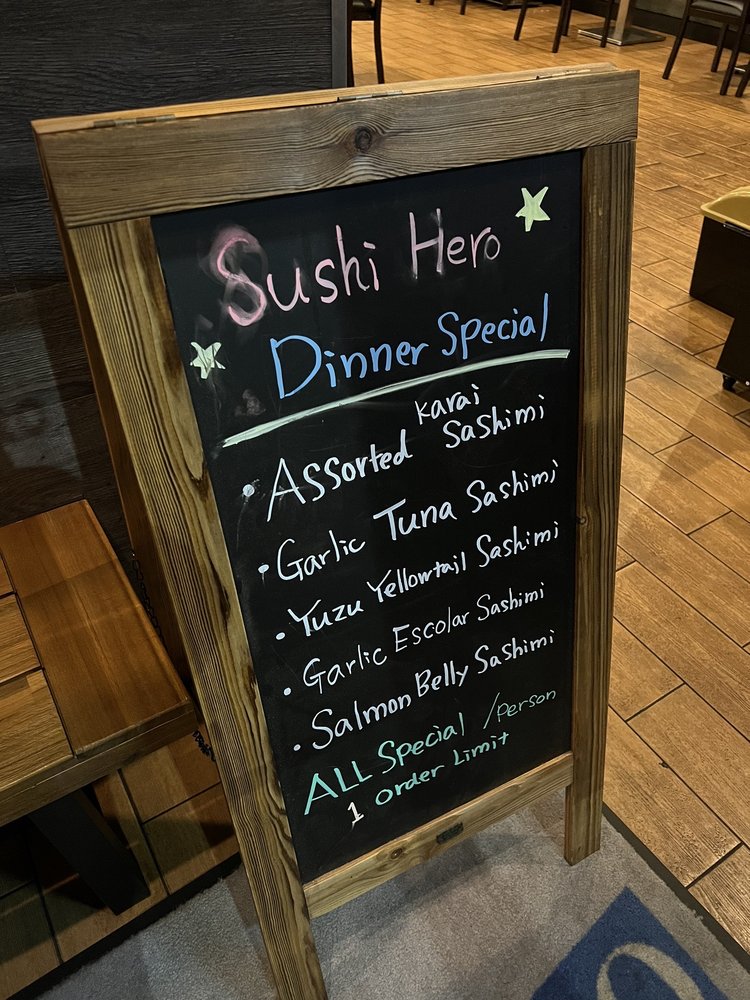 Sushi Hero
Dinner Special
• Assorted Karai Sashimi
• Garlic Tuna Sashimi
• Yuzu Yellowtail Sashimi
• Garlic Escolar Sashimi
• Salmon Belly Sashimi
ALL Special /person
1 order Limit